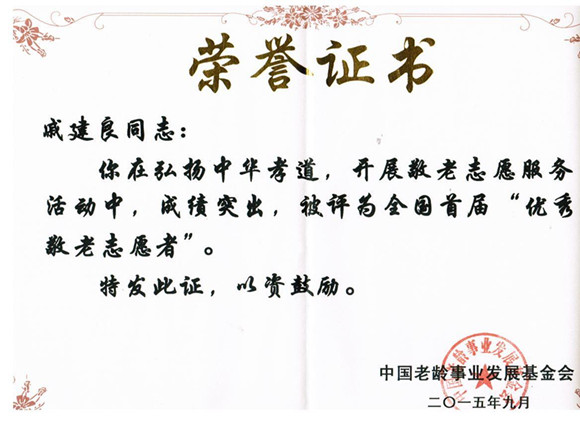 荣誉证书
戚建良同志：
你在弘扬中华孝道，开展敬老志愿服务
活动中，成绩突出，被评为全国首届“优秀
敬老志愿者”。
特发此证，以资鼓励。
中国老龄事业发展基金会
二〇一五年九月
中国老龄事业发展基金会